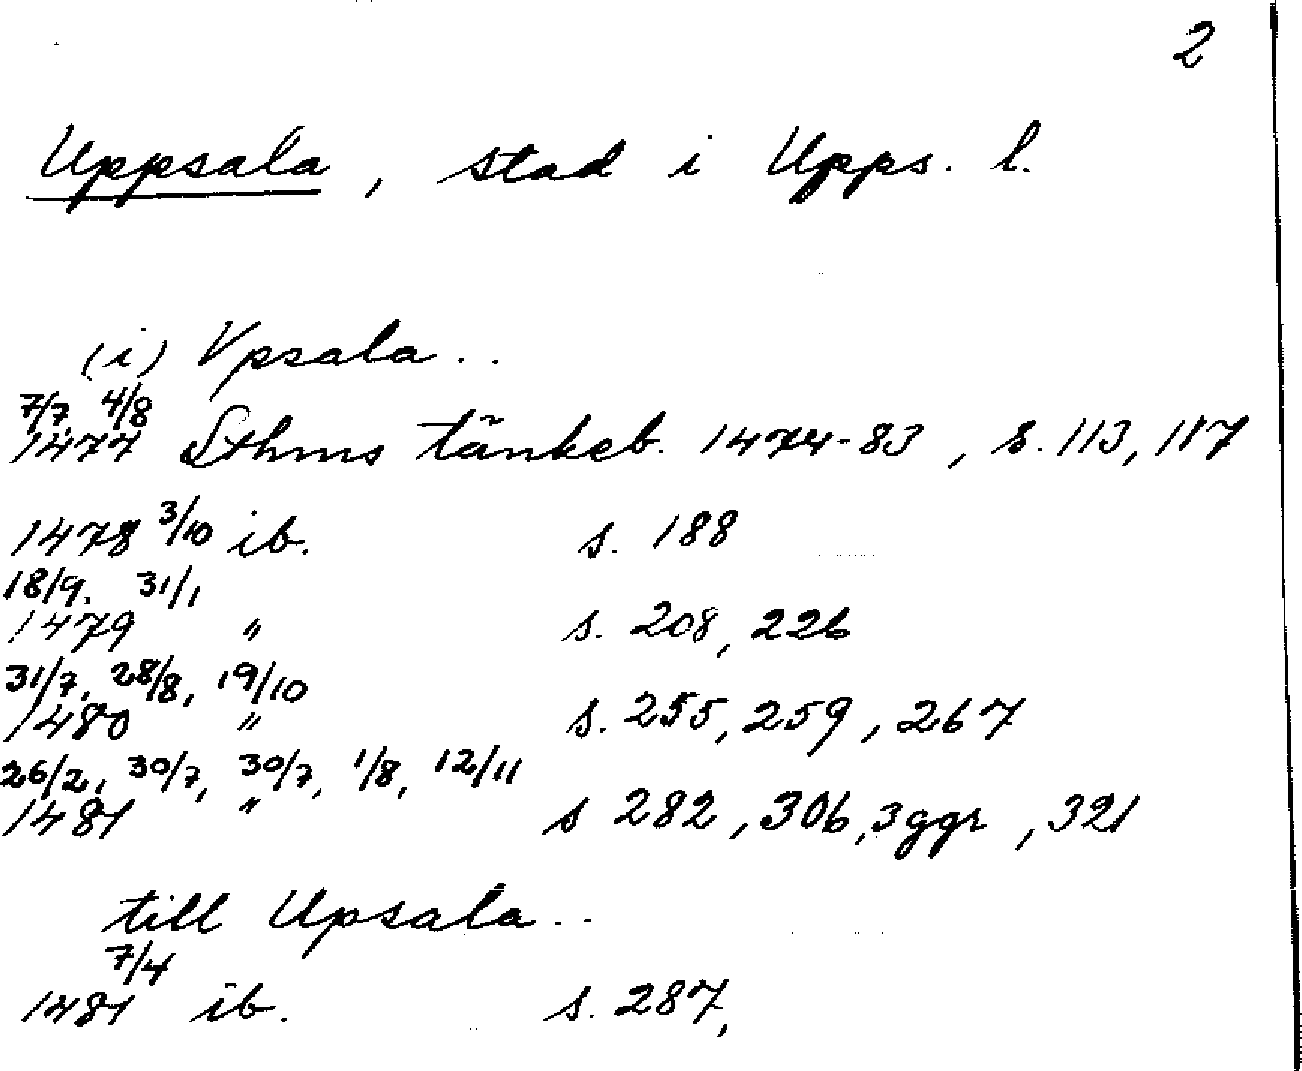 2
Uppsala, stad i Upps. l.
(i) Vpsala..
7/7, 4/8
1477 Sthms tänkeb. 1474-83, s. 113, 117
1478 3/10 ib. s. 188
18/9. 31/1
1479 " s. 208, 226
31/7, 28/8, 19/10
1480 " s. 255, 259, 267
26/2, 30/7, 30/7, 1/8, 12/11
1481 " s 282, 306, 3ggr, 321
till Upsala..
7/4
1481 ib. s. 287,